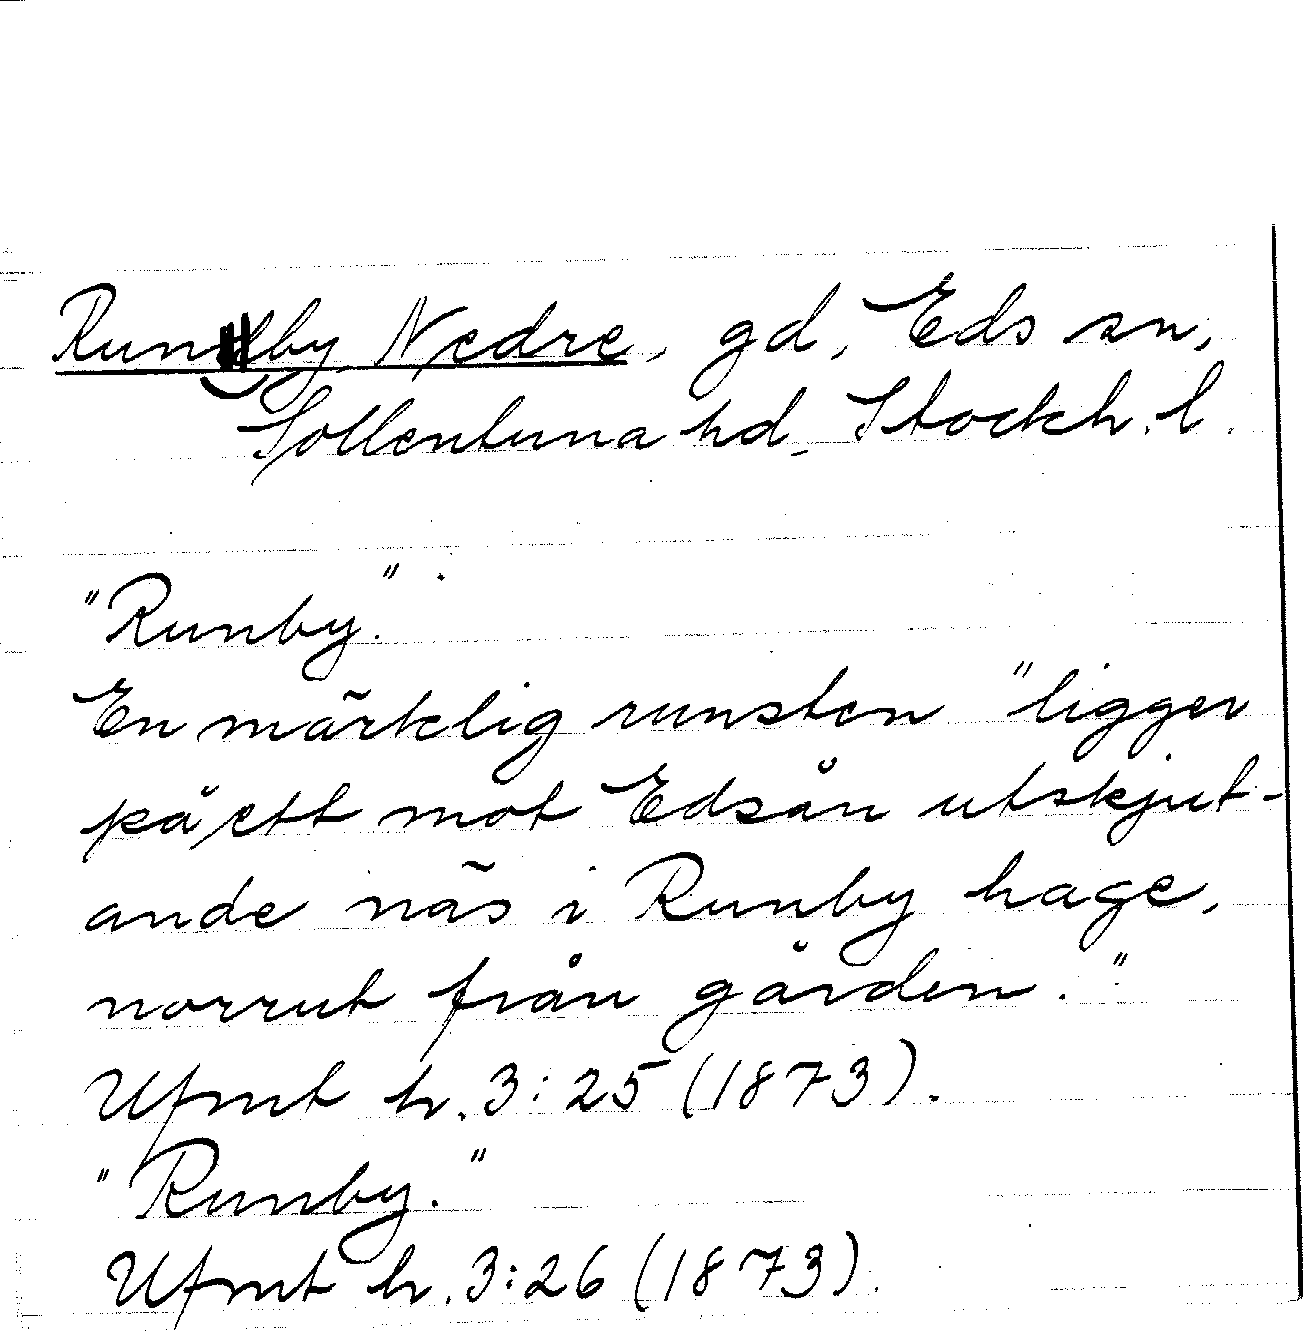 Runby Nedre, gd, Eds sn,
Sollentuna hd, Stockh. l.
"Runby."
En märklig runsten "ligger
på ett mot Edsån utskjut-
ande näs i Runby hage,
norrut från gården."
Ufmt h. 3:25 (1873).
"Runby."
Ufmt h. 3:26 (1873).